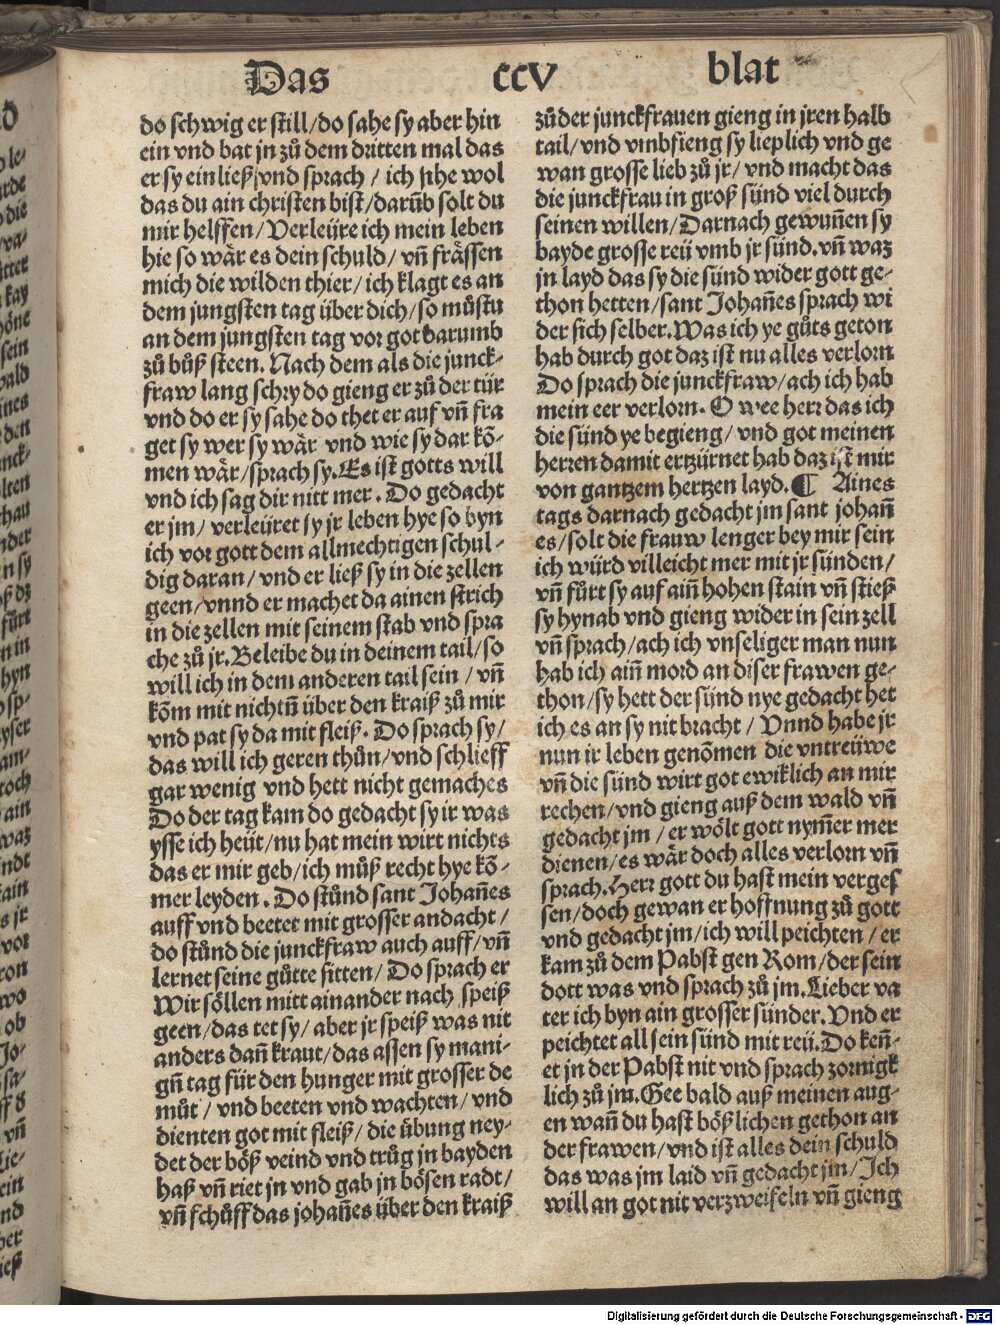 Das ccv blat
do schwig er still/do sahe sy aber hin
ein vnd bat jn zů dem dritten mal das
er sy einließ/vnd sprach / ich sihe wol
das du ain christen bist/darũb solt du
mir helffen/Verleüre ich mein leben
hie so wår es dein schuld/ vñ frässen
mich die wilden thier/ich klagt es an
dem jungsten tag über dich/so můstu
an dem jungsten tag vor got darumb
zů bůß steen. Nach dem als die junck-
fraw lang schry do gieng er zů der tür
vnd do er sy sahe do thet er auf vñ fra
get sy wer sy wår vnd wie sy dar kõ-
men wår/sprach sy. Es ist gotts will
vnd ich sag dir nitt mer. Do gedacht
er jm/ verleüret sy jr leben hye so byn
ich vor gott dem allmechtigen schul-
dig daran/vnd er ließ sy in die zellen
geen/vnnd er machet da ainen strich
in die zellen mit seinem stab vnd spra
che zů jr. Beleibe du in deinem tail/so
will ich in dem anderen tail sein / vñ
kõm mit nichtñ über den kraiß zů mir
vnd pat sy da mit fleiß. Do sprach sy/
das will ich geren thůn/vnd schlieff
gar wenig vnd hett nicht gemaches
Do der tag kam do gedacht sy ir was
ysse ich heüt/nu hat mein wirt nichts
das er mir geb/ich můß recht hye kõ-
mer leyden. Do stůnd sant Johañes
auff vnd beetet mit grosser andacht/
do stůnd die junckfraw auch auff/vñ
lernet seine gůtte sitten/ Do sprach er
Wir söllen mitt ainander nach speiß
geen/das tet sy/ aber jr speiß was nit
anders dañ kraut/das assen sy mani-
gñ tag für den hunger mit grosser de
můt/ vnd beeten vnd wachten/vnd
dienten got mit fleiß/die übung ney-
det der böß veind vnd trůg jn bayden
haß vñ riet jn vnd gab jn bösen radt/
vñ schůff das johañes über den kraiß
zů der junckfrauen gieng in jren halb
tail/vnd vmbfieng sy lieplich vnd ge
wan grosse lieb zů jr/vnd macht das
die junckfrau in groß sünd viel durch
seinen willen/Darnach gewuñen sy
bayde grosse reü vmb jr sünd. vñ waz
jn layd das sy die sünd wider gott ge-
thon hetten/sant Johañes sprach wi
der sich selber. Was ich ye gůts geton
hab durch got daz ist nu alles verlorn
Do sprach die junckfraw/ach ich hab
mein eer verlorn. O wee herr das ich
die sünd ye begieng/vnd got meinen
herren damit ertzürnet hab daz ist mir
von gantzem hertzen layd. ¶ Aines
tags darnach gedacht jm sant johañ
es/solt die frauw lenger bey mir sein
ich würd villeicht mer mit jr sünden/
vñ fůrt sy auf aiñ hohen stain vñ stieß
sy hynab vnd gieng wider in sein zell
vñ sprach/ach ich vnseliger man nun
hab ich aiñ mord an diser frawen ge-
thon/sy hett der sünd nye gedacht het
ich es an sy nit bracht/Vnnd habe jr
nun ir leben genõmen die vntreüwe
vñ die sünd wirt got ewiklich an mir
rechen/vnd gieng auß dem wald vñ
gedacht jm/er wölt gott nym̃er mer
dienen/es wår doch alles verlorn vñ
sprach. Herr gott du hast mein verges
sen/doch gewan er hoffnung zů gott
vnd gedacht jm/ich will peichten/er
kam zů dem Pabst gen Rom/der sein
dott was vnd sprach zů jm. Lieber va
ter ich byn ain grosser sünder. Vnd er
peichtet all sein sünd mit reü. Do keñ-
et jn der Pabst nit vnd sprach zornigk
lich zů jm. Gee bald auß meinen aug-
en wañ du hast bößlichen gethon an
der frawen/vnd ist alles dein schuld
das was jm laid vñ gedacht jm/Ich
will an got nit verzweifeln vñ gieng
Digitalisierung gefördert durch die Deutsche Forschungsgemeinschaft - DFG